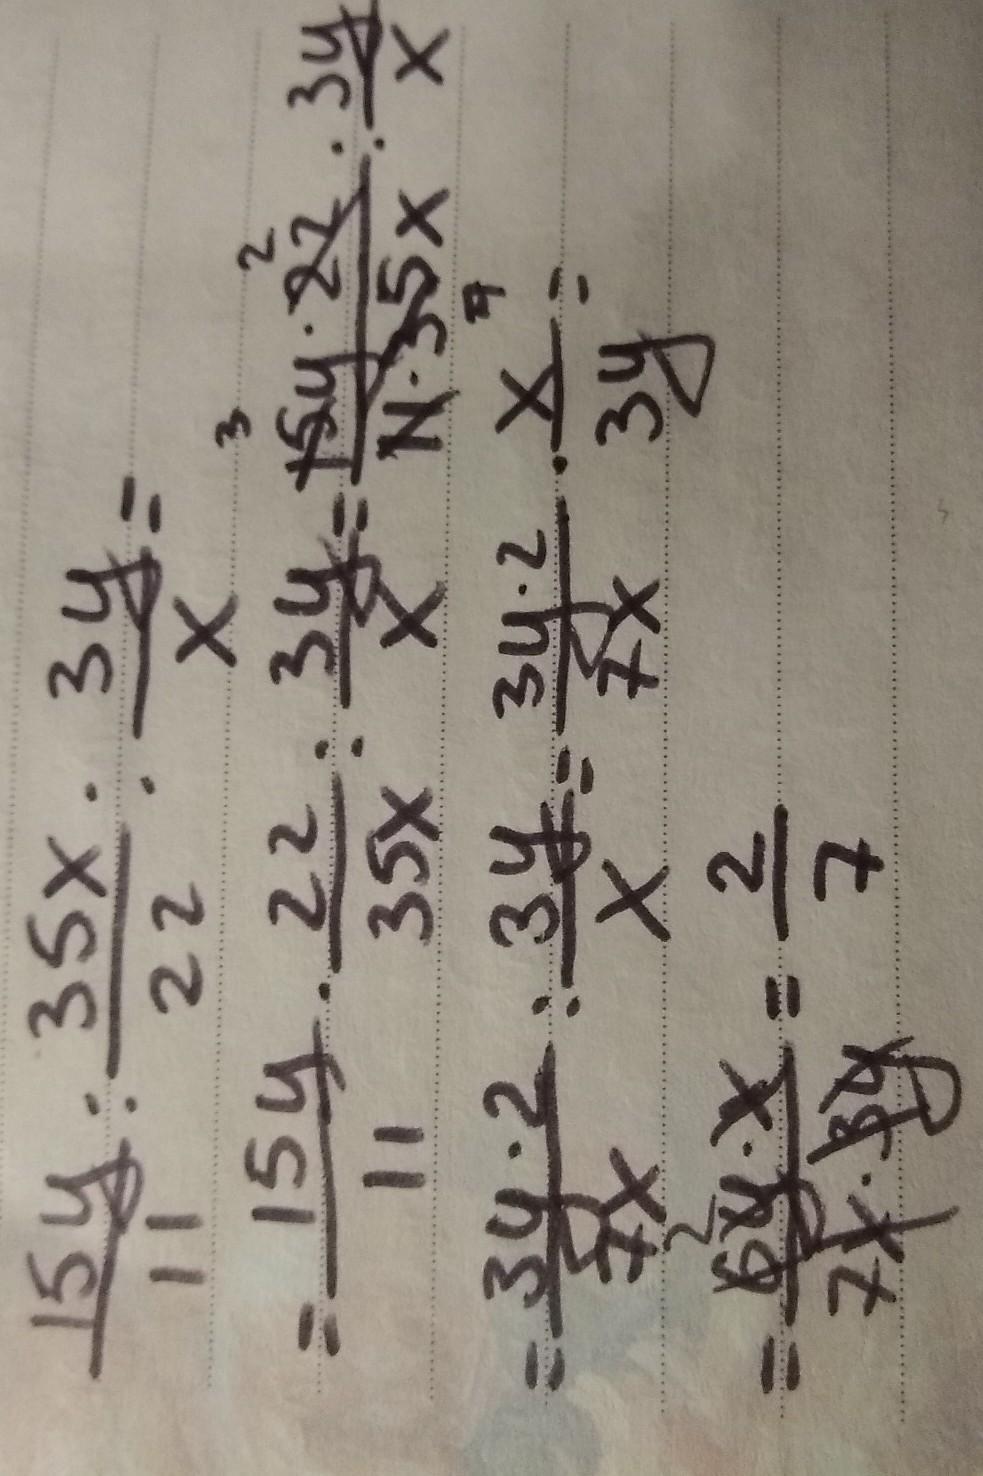 15y/11 : 35x/22 : 3y/x =
= 15y/11 · 22/35x : 3y/x = 15y³ · 22²/11 · 35x₇ : 3y/x
= 3y · 2/7x : 3y/x = 3y · 2/7x · x/3y =
= 6y² · x/7x · 3y = 2/7